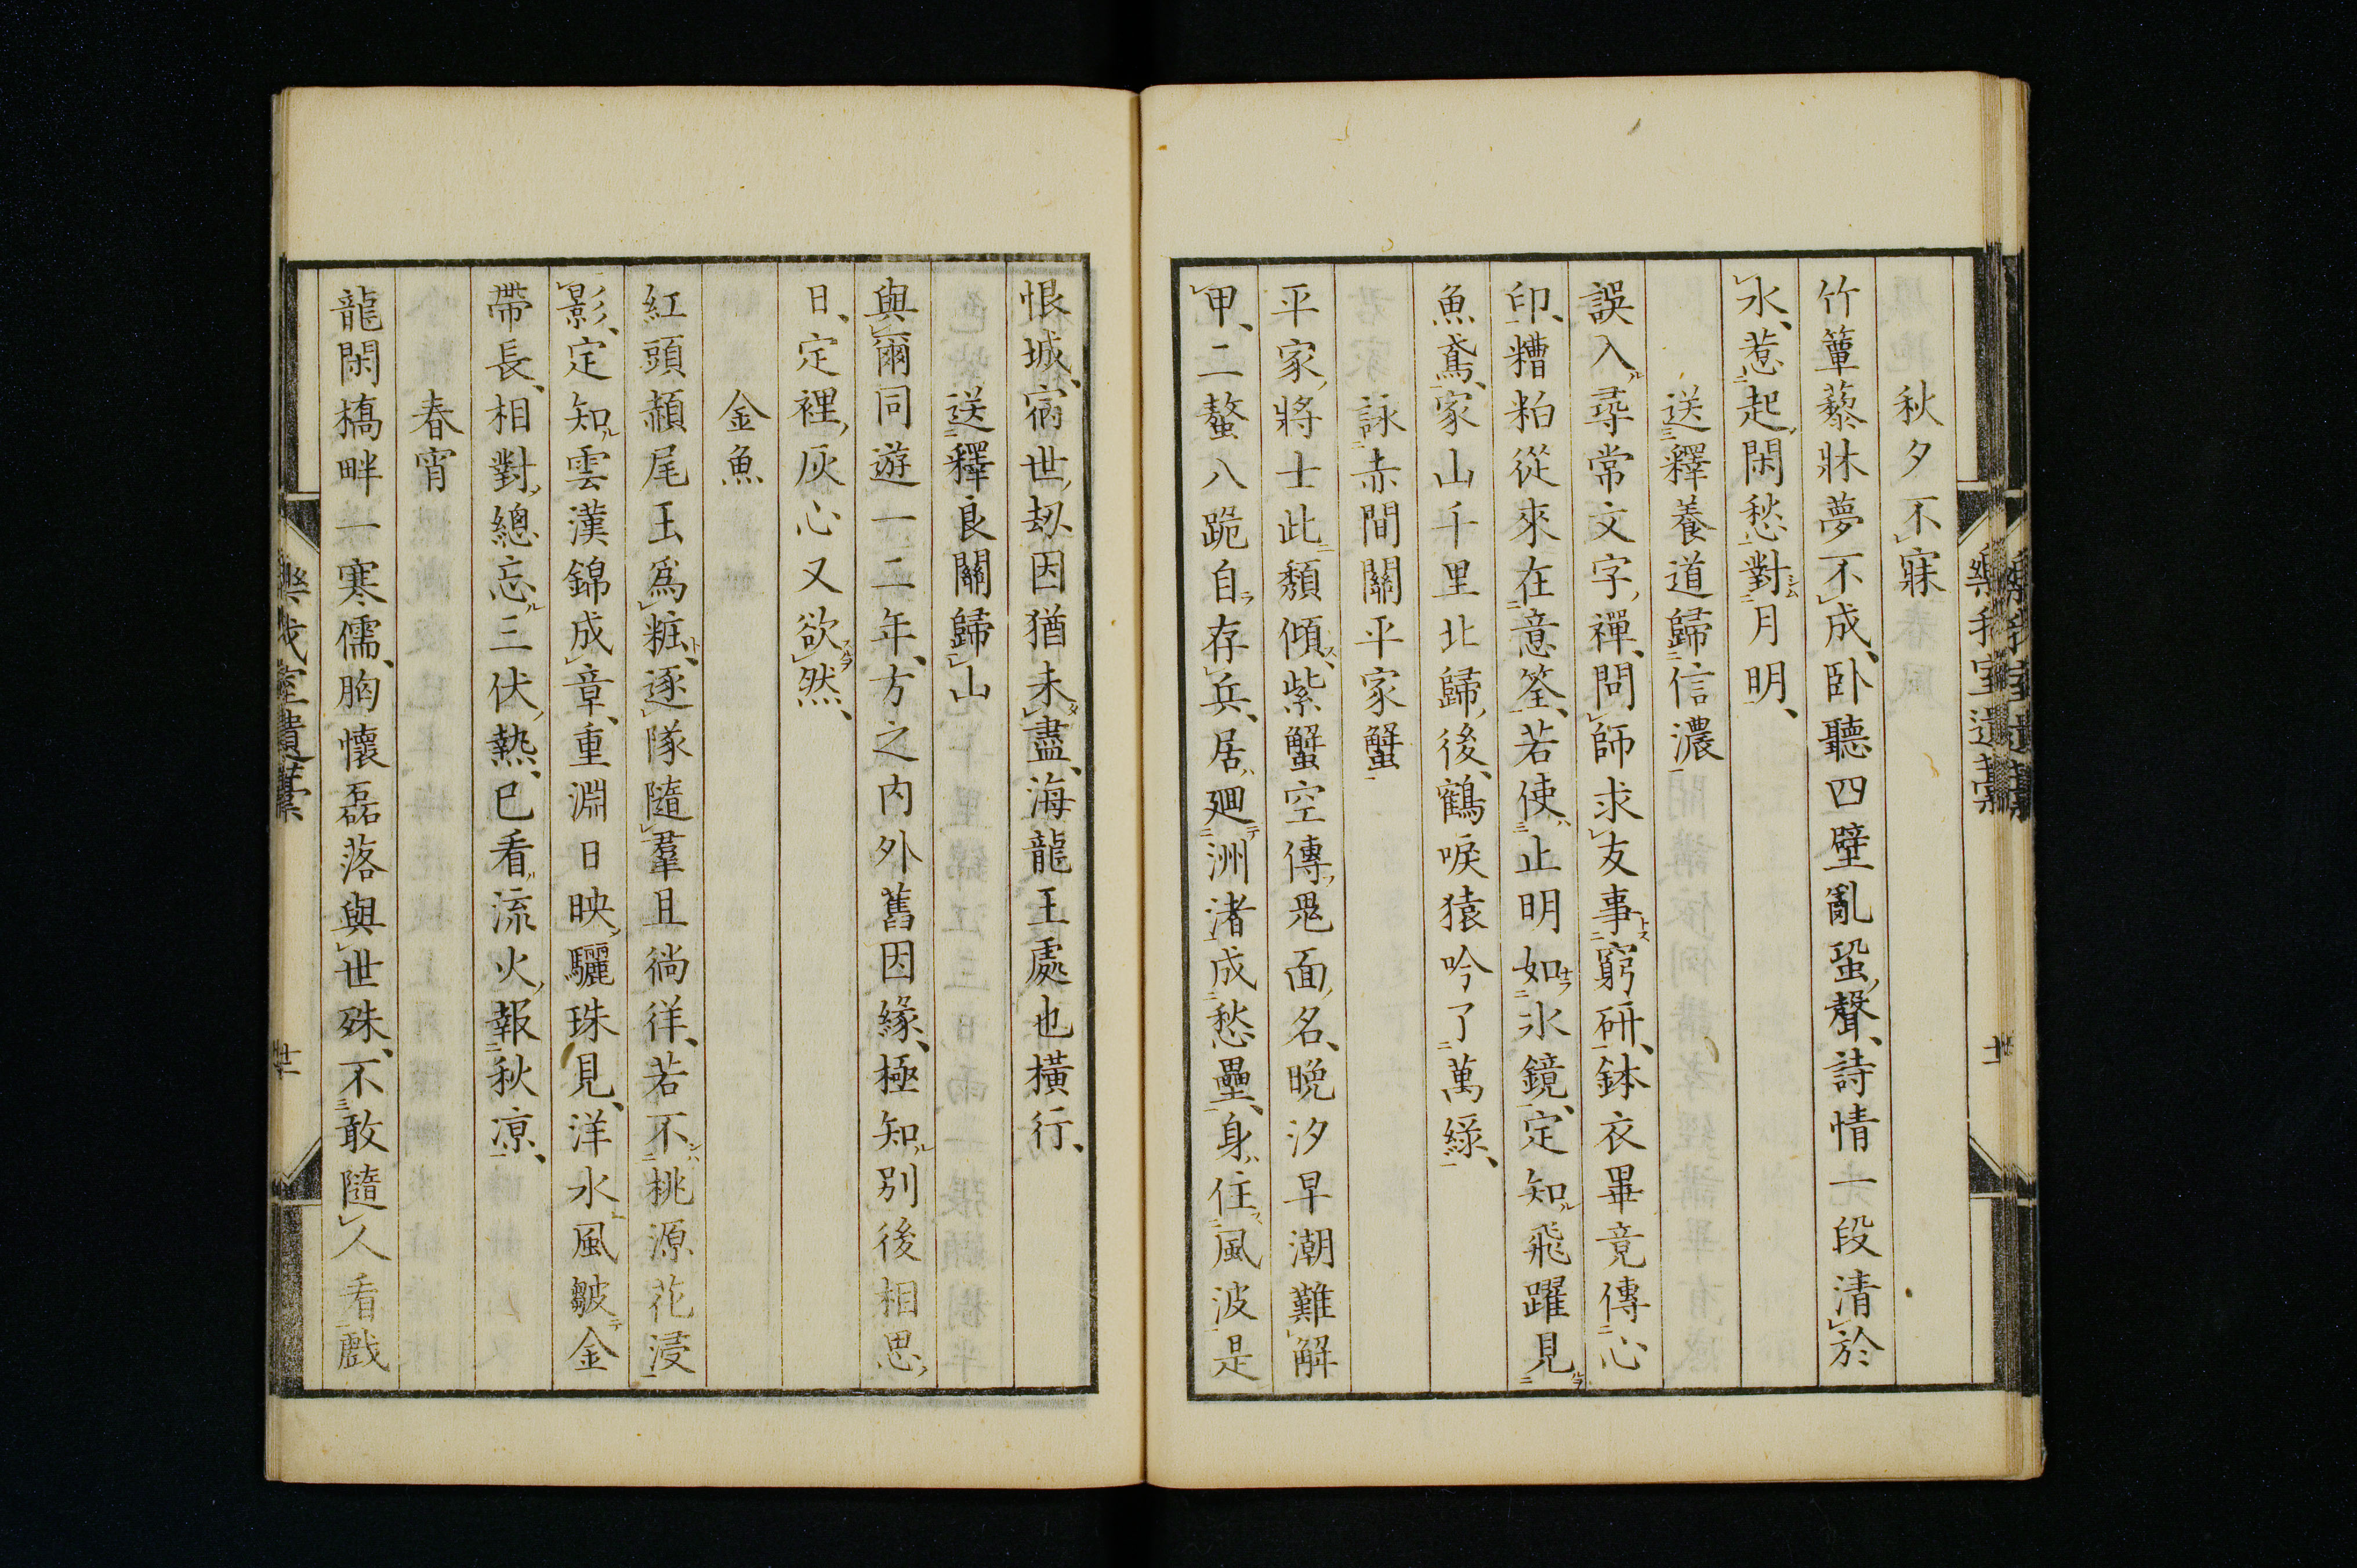 秋夕不寐
竹簟藜牀夢不成、臥聽四壁亂蛩聲、詩情一段清於
水、惹起閑愁對月明、
送釋養道歸信濃
誤入尋常文字禪、問師求友事窮研、鉢衣畢竟傳心
印、糟粕從來在意筌、若使止明如氷鏡、定知飛躍見
魚鳶、家山千里北歸後、鶴唳猿吟了萬緣、
詠赤間關平家蟹
平家將士此頽傾、紫蟹空傳鬼面名、晩汐早潮難解
甲、二螯八跪自存兵、居廻洲渚成愁壘、身住風波是
恨城、宿世劫因猶未盡、海龍王處也橫行、
送釋良關歸山
與爾同遊一二年、方之内外舊因緣、極知別後相思
日、定裡灰心又欲然、
金魚
紅頭赬尾玉爲粧、逐隊隨羣且徜徉、若不桃源花浸
影、定知雲漢錦成章、重淵日映驪珠見、洋水風皺金
帶長、相對總忘三伏熱、已看流火報秋凉、
春宵
龍閑橋畔一寒儒、胸懷磊落與世殊、不敢隨人看戲
樂我室遺藁